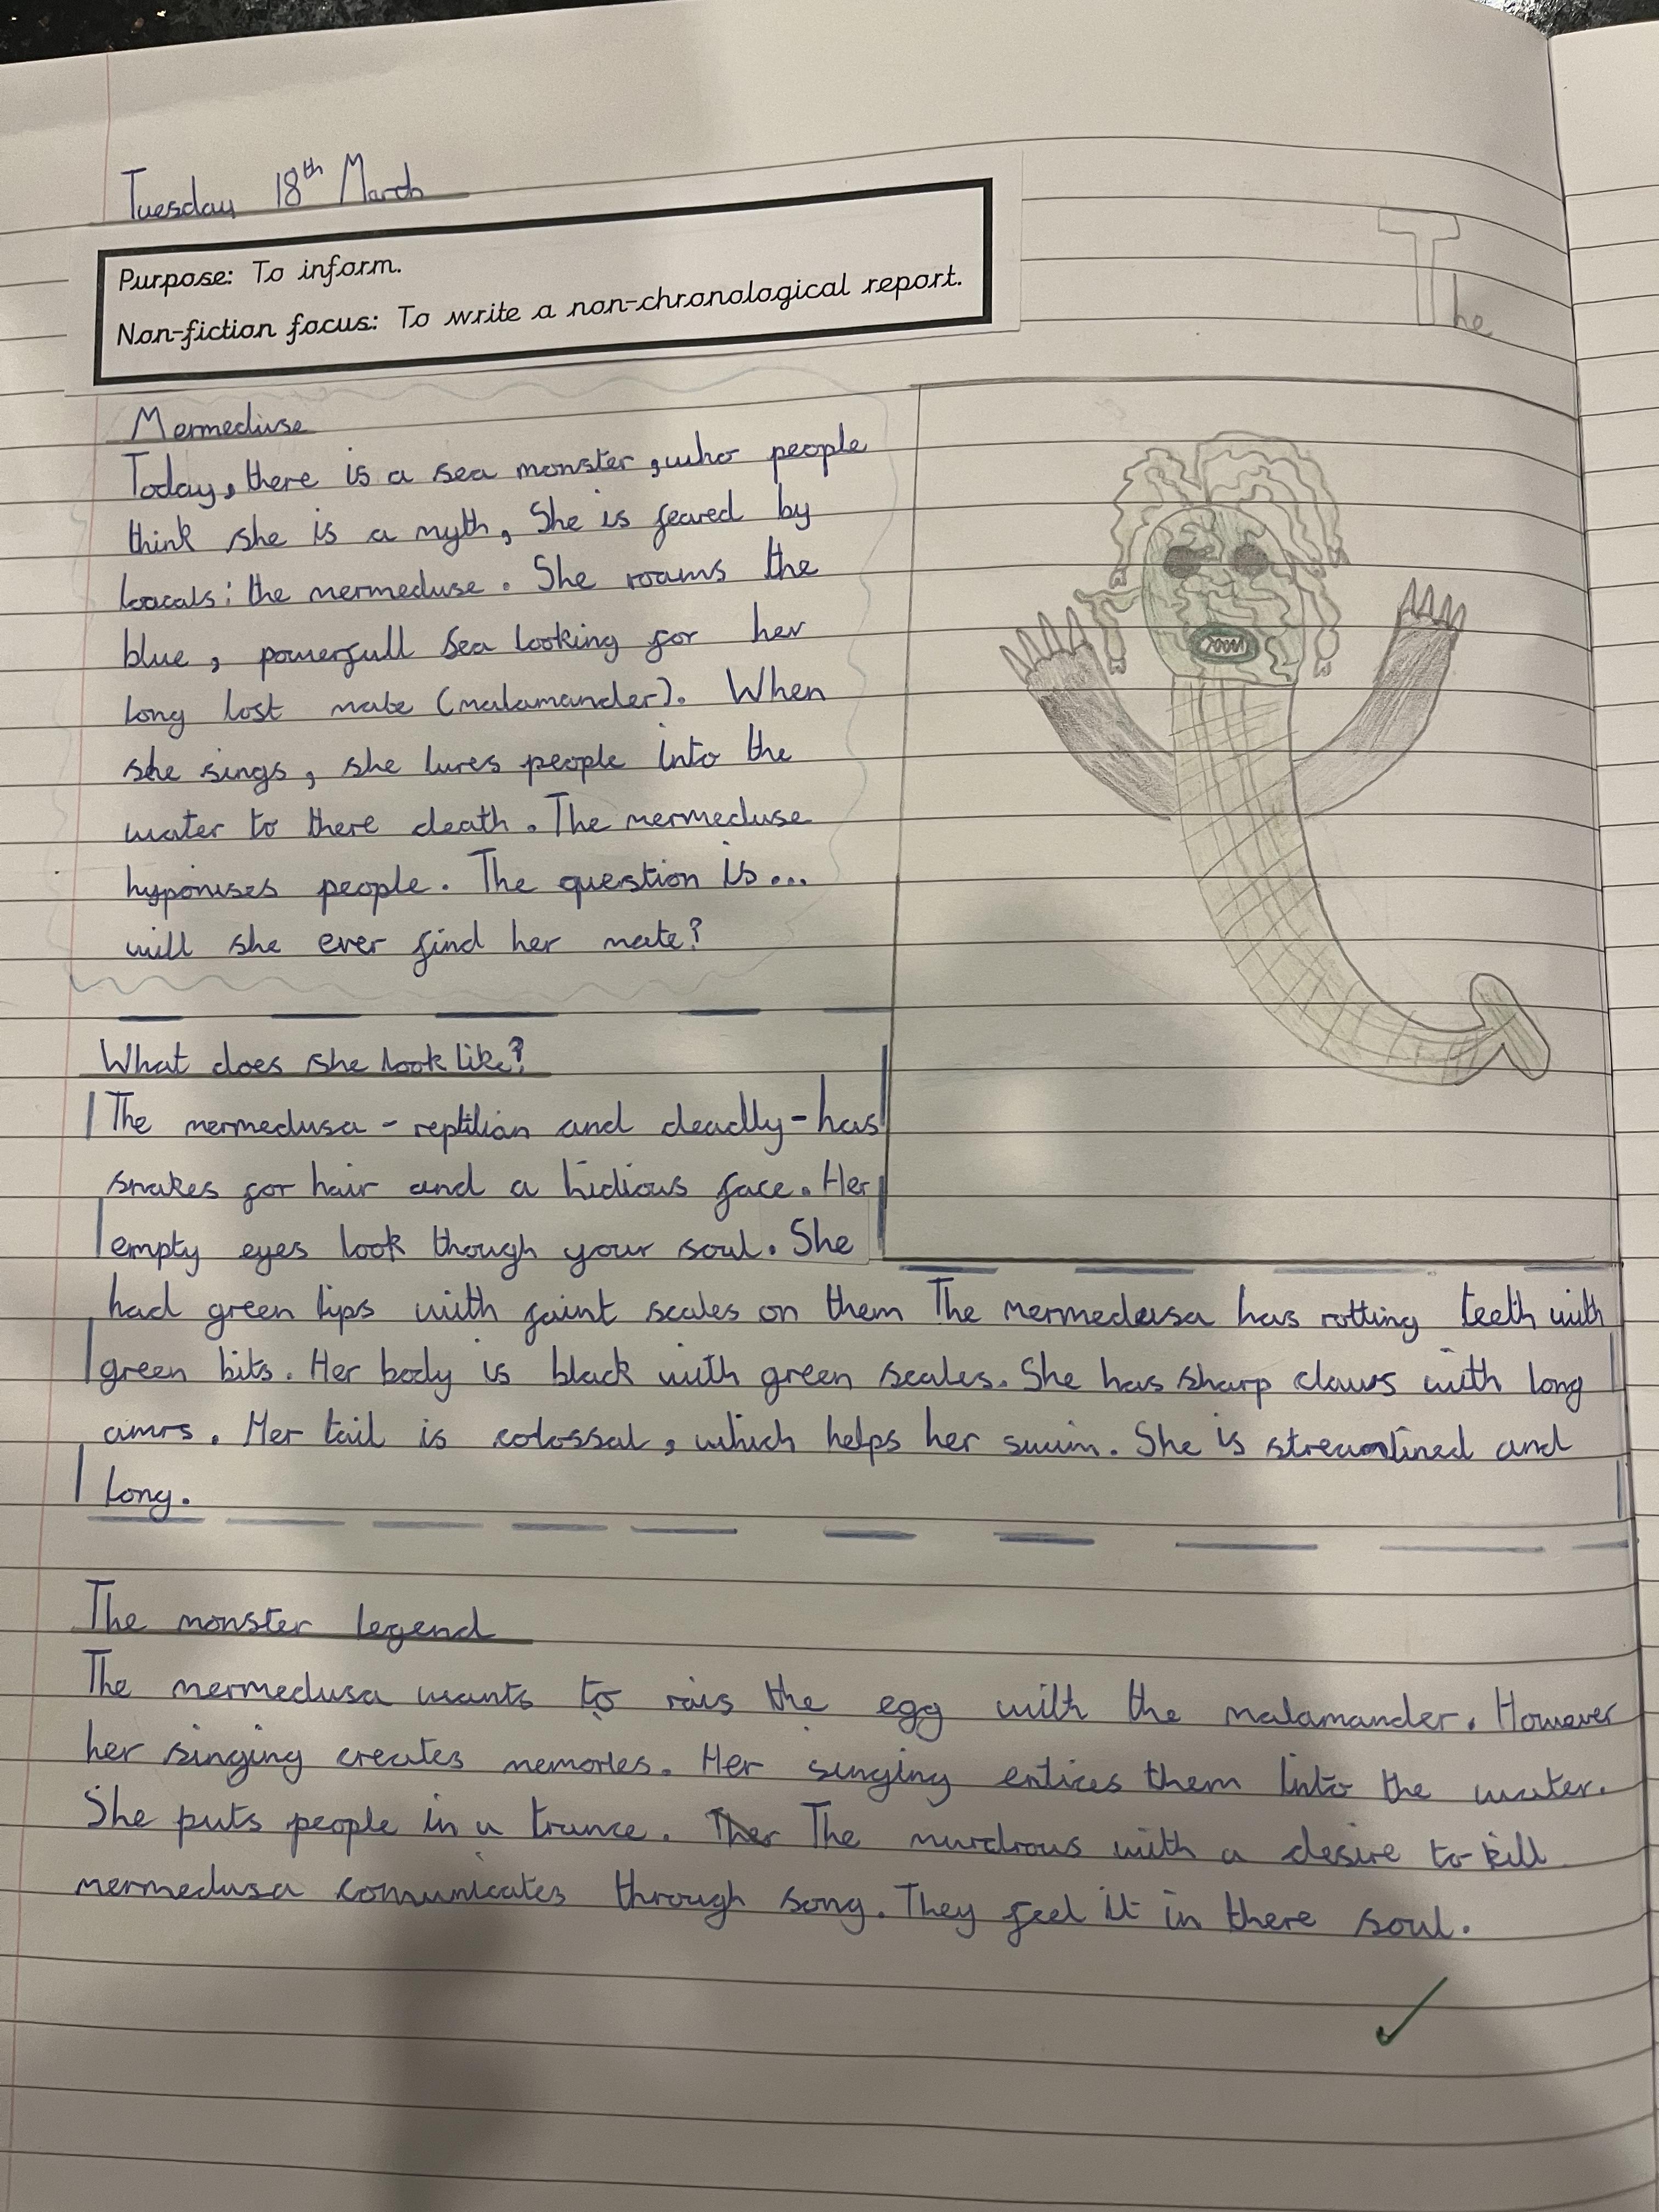 Tuesday 18th March
Purpose: To inform.
Non-fiction focus: To write a non-chronological report.
The
Mermeduse
Today, there is a sea monster, who people
think she is a myth, She is feared by
loacals: the mermeduse. She roams the
blue, powerfull sea looking for her
long lost mate (malamander). When
she sings, she lures people into the
water to there death. The mermeduse
hyponises people. The question is...
will she ever find her mate?
What does she look like?
The mermedusa - reptilian and deadly - has
snakes for hair and a hidious face. Her
empty eyes look though your soul. She
had green lips with faint scales on them The mermedusa has rotting teeth with
green bits. Her body is black with green scales. She has sharp claws with long
amrs. Her tail is colossal, which helps her swim. She is streamlined and
long.
The monster legend
The mermedusa wants to rais the egg with the malamander. However
her singing creates memories. Her singing entices them into the water.
She puts people in a trance. Ther The murdrous with a desire to kill
mermedusa comunicates through song. They feel it in there soul.